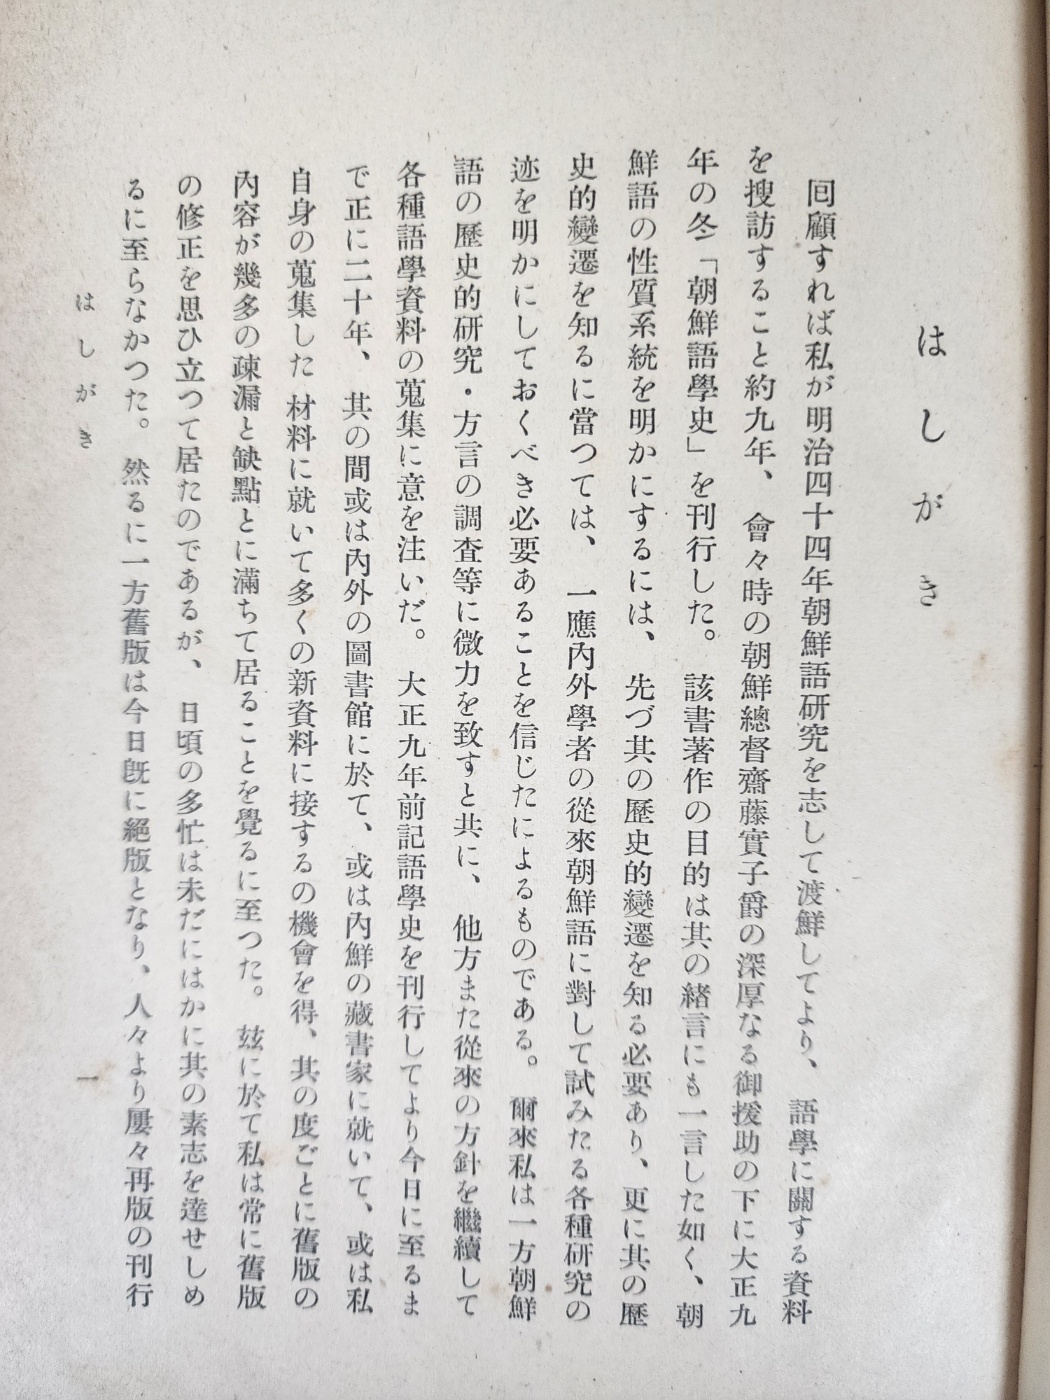 はしがき
回顧すれば私が明治四十四年朝鮮語研究を志して渡鮮してより、語學に關する資料
を搜訪すること約九年、會々時の朝鮮總督齋藤實子爵の深厚なる御援助の下に大正九
年の冬「朝鮮語學史」を刊行した。該書著作の目的は其の緖言にも一言した如く、朝
鮮語の性質系統を明かにするには、先づ其の歷史的變遷を知る必要あり、更に其の歷
史的變遷を知るに當つては、一應內外學者の從來朝鮮語に對して試みたる各種研究の
迹を明かにしておくべき必要あることを信じたによるものである。爾來私は一方朝鮮
語の歷史的研究・方言の調査等に微力を致すと共に、他方また從來の方針を繼續して
各種語學資料の蒐集に意を注いだ。大正九年前記語學史を刊行してより今日に至るま
で正に二十年、其の間或は內外の圖書館に於て、或は內鮮の藏書家に就いて、或は私
自身の蒐集した材料に就いて多くの新資料に接するの機會を得、其の度ごとに舊版の
內容が幾多の疎漏と缺點とに滿ちて居ることを覺るに至つた。玆に於て私は常に舊版
の修正を思ひ立つて居たのであるが、日頃の多忙は未だにはかに其の素志を達せしめ
るに至らなかつた。然るに一方舊版は今日旣に絕版となり、人々より屢々再版の刊行
はしがき
一